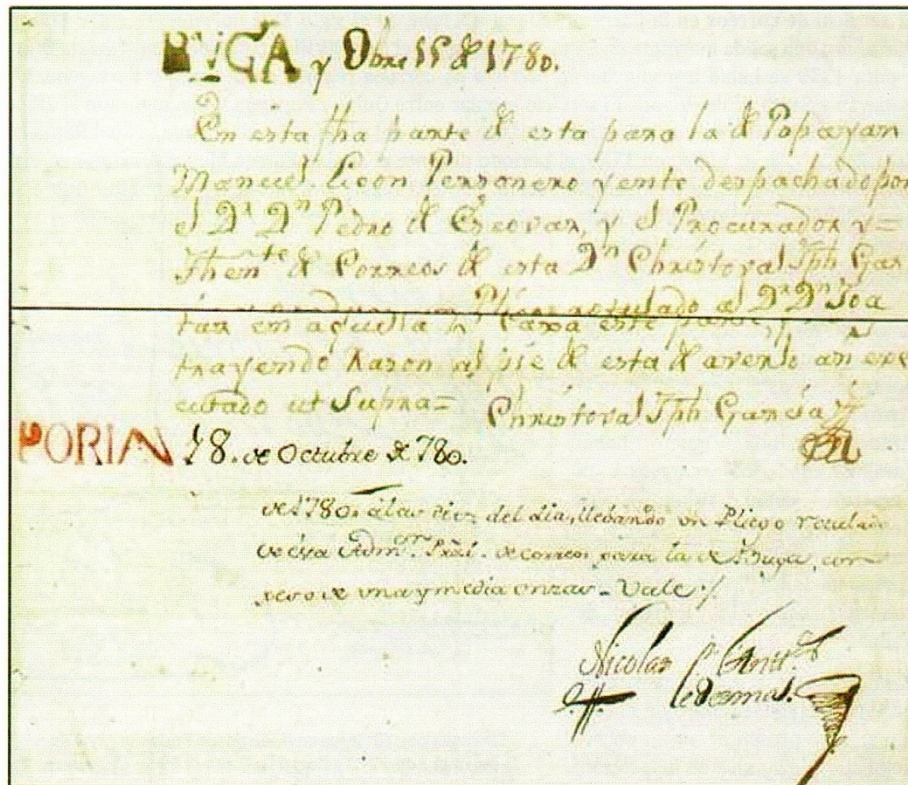 BUGA y Obre 15 de 1780.
En esta fha parte de esta para la de Popayan
Manuel Licon Personero yente despachado por
el Dr Dn Pedro de Escovar, y el Procurador y=
Thente de Correos de esta Dn Christoval Jph Gar
Pliego rotulado al Dr Dn Joa
en aquella
trayendo Razon al pie de esta de averlo an exe
cutado ut Supra= Christoval Jph Garcia
PORIAN 18. de Octubre de 780.
de 1780, a las diez del dia, llebando un Pliego rotulado
de esa Admon. Pral. de correos para la de Buga, con
peso de una y media onzas - Vale /.
Nicolas
Ledesma.